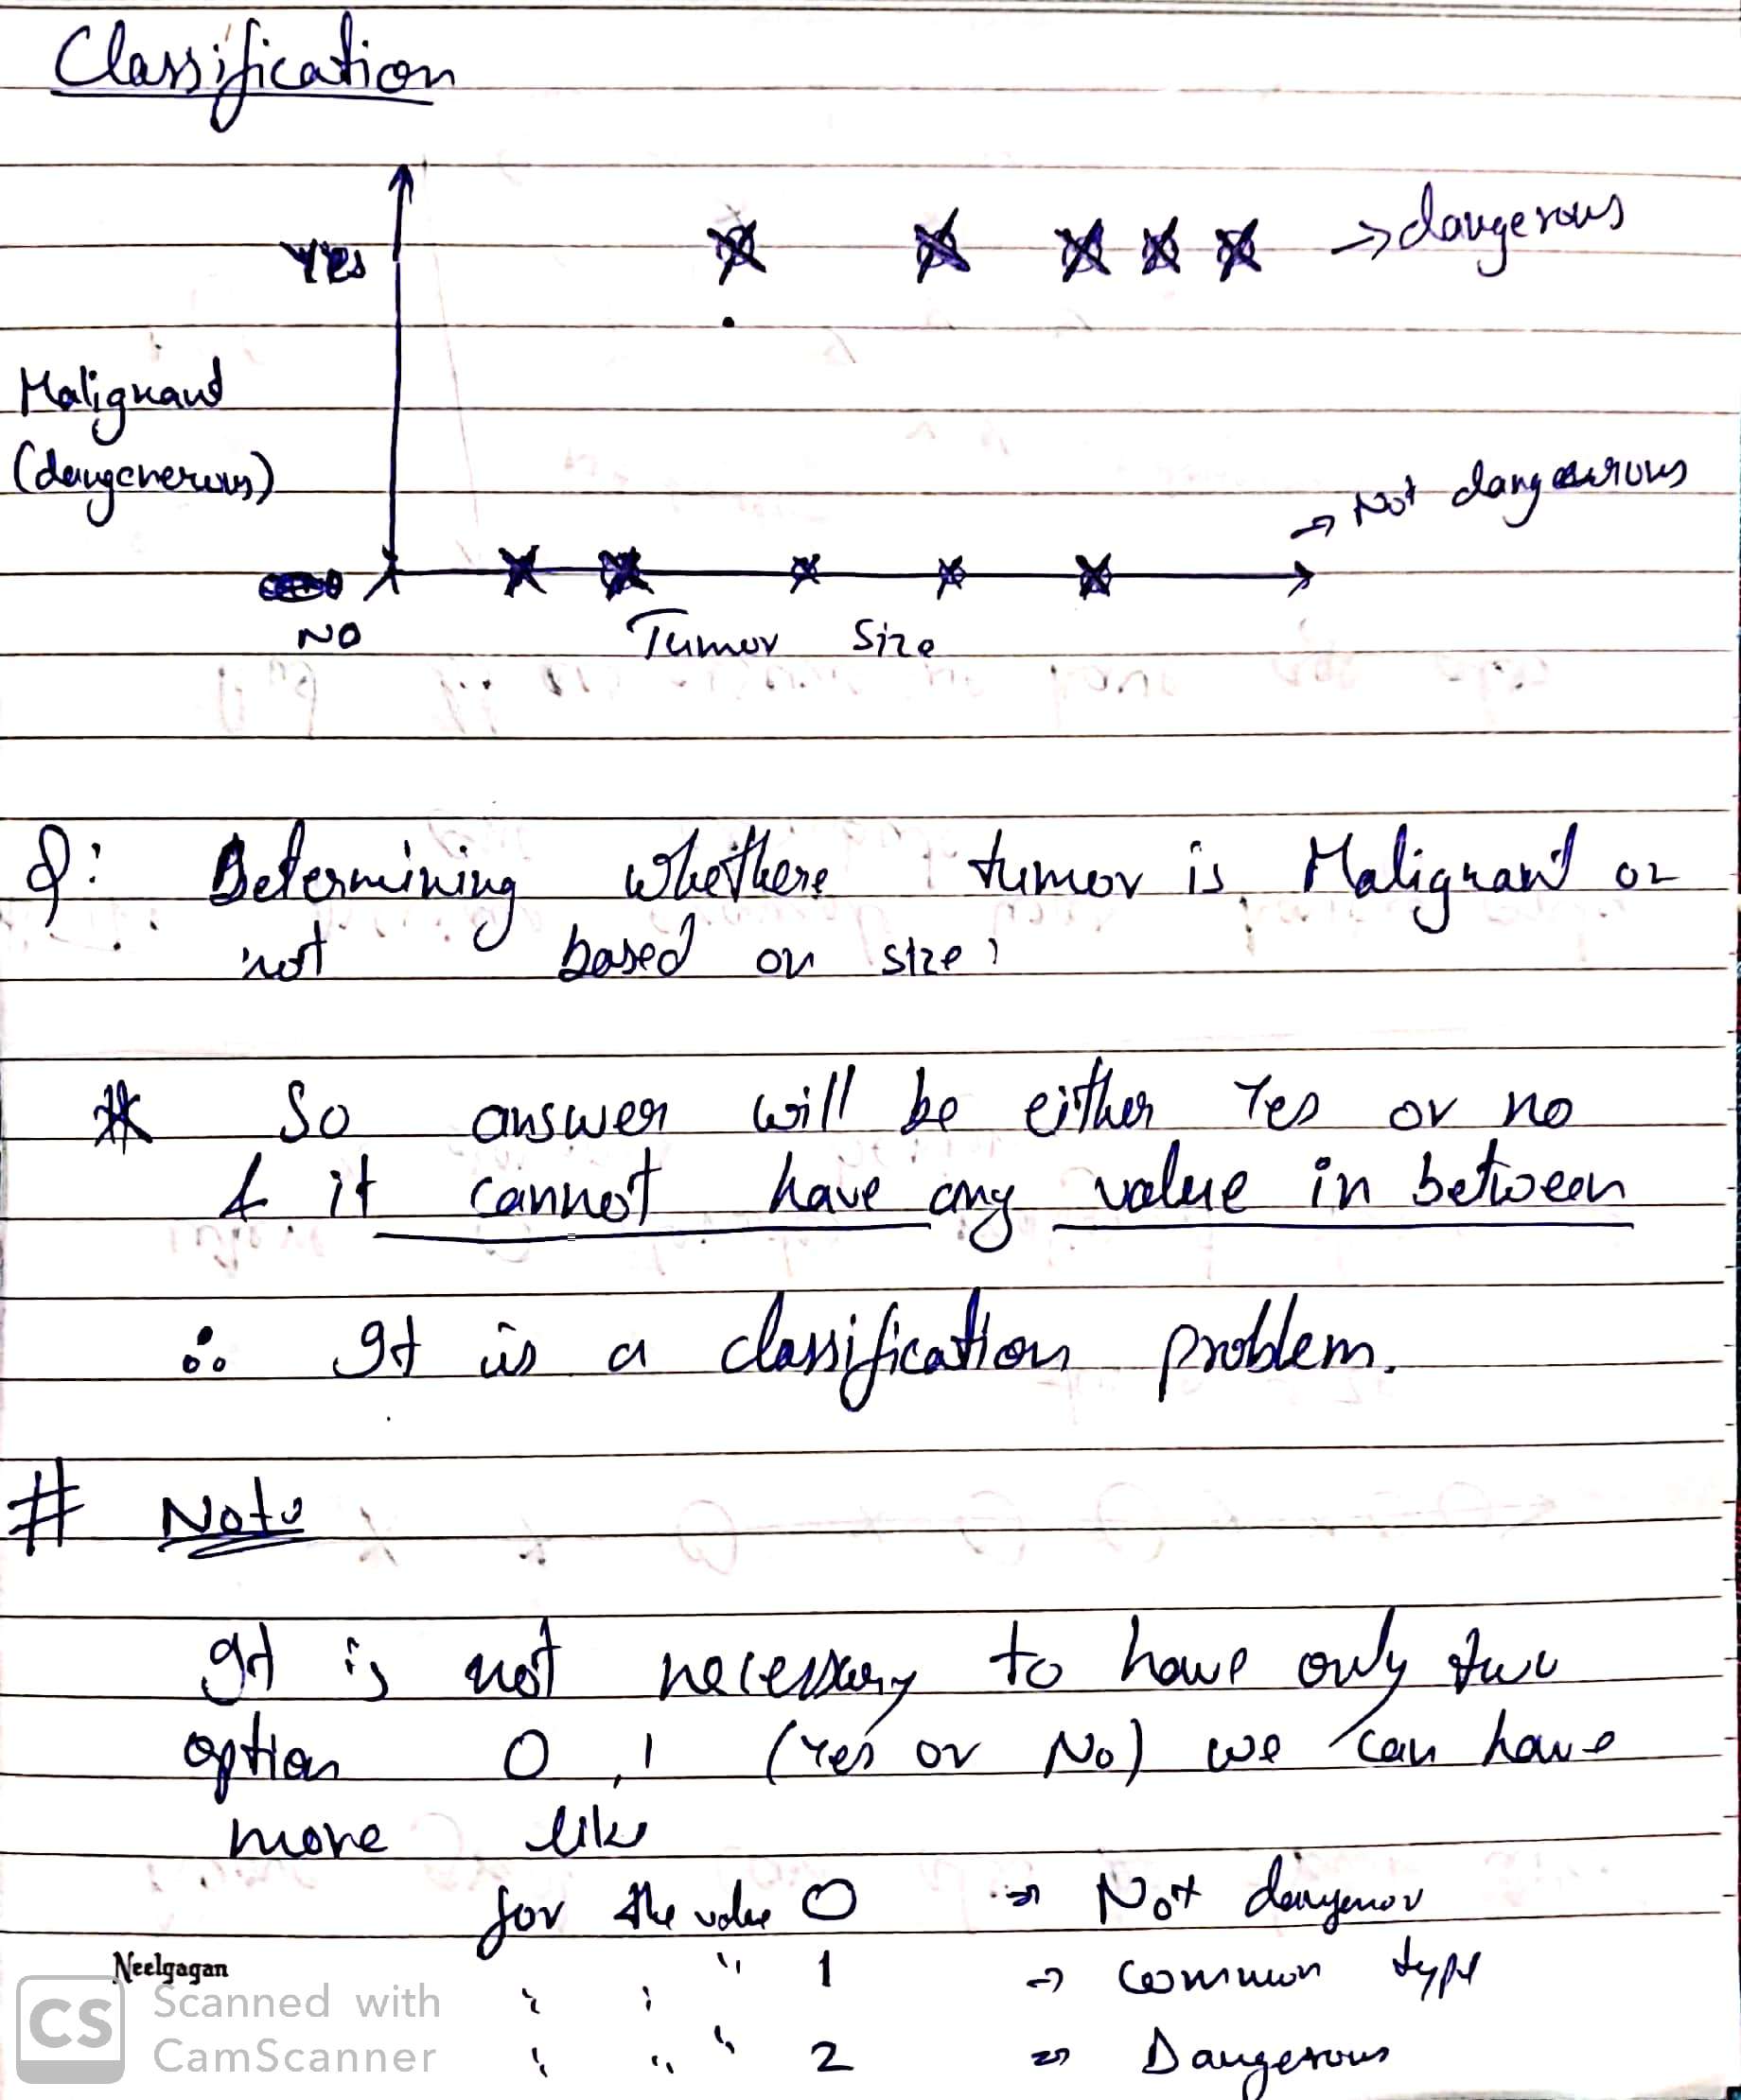 Classification
Yes
→ dangerous
Malignant
(dangenerous)
→ Not dangerous
NO
Tumor Size
Q: Determining whethere tumor is Malignant or
not based on size?
* So answer will be either Yes or no
& it cannot have any value in between
∴ It is a classification problem.
# Note
It is not necessary to have only two
option 0, 1 (Yes or No) we can have
more like
for the value 0 → Not dangerou
" 1 → common type
" 2 → Dangerous
Neelgagan
CS
Scanned with
CamScanner